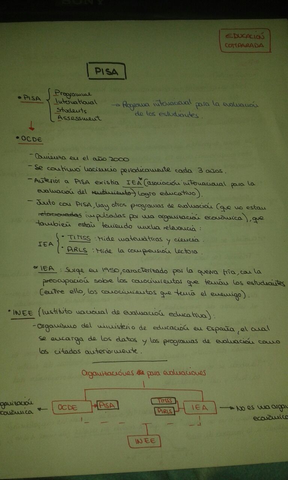 EDUCACIÓN
COMPARADA
PISA
• PISA
Programme
International
Students
Assessment
Programa internacional para la evaluación
de los estudiantes.
• OCDE
- Comienza en el año 2000
- Se continua haciendo periodicamente cada 3 años
- Anterior a PISA existía IEA (asociación internacional para la
evaluación del rendimiento) (logro educativo)
- Junto con PISA, hay otros programas de evaluación (que no están
impulsados por una organización económica), que
también están teniendo mucha relevancia:
IEA
• TIMSS: Mide matemáticas y ciencia
• PIRLS: Mide la comprensión lectora
- IEA: Surge en 1950, caracterizado por la guerra fría, con la
preocupación sobre los conocimientos que tenían los estudiantes
(entre ello, los conocimientos que tenía el enemigo)...
• INEE (Instituto nacional de evaluación educativa)
- Organismo del ministerio de educación en España, el cual
se encarga de los datos y los programas de evaluación como
los citados anteriormente.
Organizaciones para evaluaciones
OCDE
PISA
TIMSS
PIRLS
IEA
No es una organ
económica
INEE